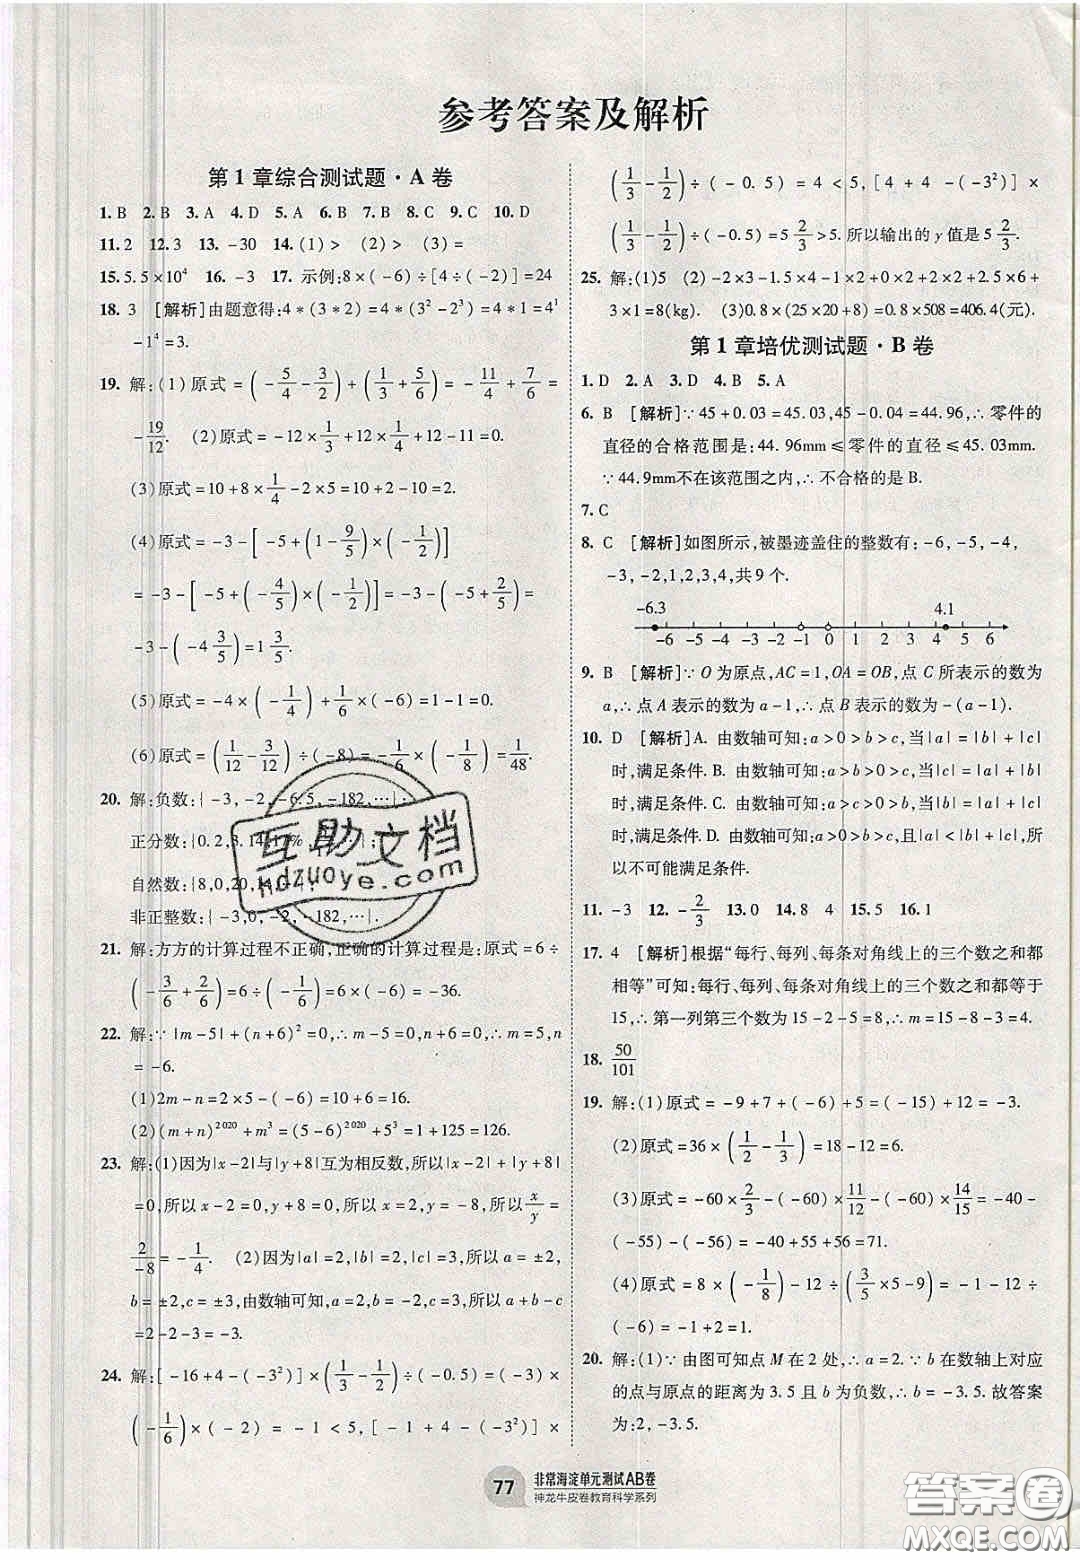 参考答案及解析
第1章综合测试题·A卷
1. B 2. B 3. A 4. D 5. A 6. B 7. B 8. C 9. C 10. D
11. 2 12. 3 13. -30 14. (1)> (2)> (3)=
15. 5.5×10⁴ 16. -3 17. 示例:8×(-6)÷[4÷(-2)]=24
18. 3 [解析]由题意得:4*(3*2)=4*(3²-2³)=4*1=4¹
-1⁴=3.
19. 解:(1)原式=(-5/4-3/2)+(1/3+5/6)=-11/4+7/6=
-19/12. (2)原式=-12×1/3+12×1/4+12=-4+3-8+9=0.
(3)原式=10+8×1/4-2×5=10+2-10=2.
(4)原式=-3-[-5+(1-9/5)×(-1/2)]
=-3-[-5+(-4/5)×(-1/2)]=-3-(-5+2/5)=
-3-(-4 3/5)=1 3/5.
(5)原式=-4×(-1/4)+1/6×(-6)=1-1=0.
(6)原式=(1/12-3/12)÷(-8)=-1/6×(-1/8)=1/48.
20. 解:负数:{-3,-2,-6.5,-182,…};
正分数:{0.2,3.14,
自然数:{8,0,20,
非正整数:{-3,0,-2,-182,…}.
21. 解:方方的计算过程不正确,正确的计算过程是:原式=6÷
(-3/6+2/6)=6÷(-1/6)=6×(-6)=-36.
22. 解:∵|m-5|+(n+6)²=0,∴m-5=0,n+6=0,∴m=5,n
=-6.
(1)2m-n=2×5-(-6)=10+6=16.
(2)(m+n)²⁰²⁰+m³=(5-6)²⁰²⁰+5³=1+125=126.
23. 解:(1)因为|x-2|与|y+8|互为相反数,所以|x-2|+|y+8|
=0,所以x-2=0,y+8=0,所以x=2,y=-8,所以x/y=
2/-8=-1/4. (2)因为|a|=2,|b|=2,|c|=3,所以a=±2,
b=±2,c=±3,由数轴可知,a=2,b=-2,c=3,所以a+b-c
=2-2-3=-3.
24. 解:[-16+4-(-3²)]×(1/3-1/2)÷(-0.5)=(-3)×
(-1/6)×(-2)=-1<5,[-1+4-(-3²)]×
(1/3-1/2)÷(-0.5)=4<5,[4+4-(-3²)]×
(1/3-1/2)÷(-0.5)=5 2/3>5.所以输出的y值是5 2/3.
25. 解:(1)5 (2)-2×3-1.5×4-1×2+0×2+2×2.5×6+
3×1=8(kg). (3)0.8×(25×20+8)=0.8×508=406.4(元).
第1章培优测试题·B卷
1. D 2. A 3. D 4. B 5. A
6. B [解析]∵45+0.03=45.03,45-0.04=44.96,∴零件的
直径的合格范围是:44.96mm≤零件的直径≤45.03mm.
∵44.9mm不在该范围之内,∴不合格的是B.
7. C
8. C [解析]如图所示,被墨迹盖住的整数有:-6,-5,-4,
-3,-2,1,2,3,4,共9个.
-6.3 4.1
-6 -5 -4 -3 -2 -1 0 1 2 3 4 5 6
9. B [解析]∵O为原点,AC=1,OA=OB,点C所表示的数为
a,∴点A表示的数为a-1,∴点B表示的数为-(a-1).
10. D [解析]A. 由数轴可知:a>0>b>c,当|a|=|b|+|c|
时,满足条件. B. 由数轴可知:a>b>0>c,当|c|=|a|+|b|
时,满足条件. C. 由数轴可知:a>c>0>b,当|b|=|a|+|c|
时,满足条件. D. 由数轴可知:a>0>b>c,且|a|<|b|+|c|,所
以不可能满足条件.
11. -3 12. -2/3 13. 0 14. 8 4 15. 5 16. 1
17. 4 [解析]根据“每行、每列、每条对角线上的三个数之和都
相等”可知:每行、每列、每条对角线上的三个数之和都等于
15,∴第一列第三个数为15-2-5=8,∴m=15-8-3=4.
18. 50/101
19. 解:(1)原式=-9+7+(-6)+5=(-15)+12=-3.
(2)原式=36×(1/2-1/3)=18-12=6.
(3)原式=-60×2/3-(-60)×11/12-(-60)×14/15=-40-
(-55)-(-56)=-40+55+56=71.
(4)原式=8×(-1/8)-12÷(3/5×5-9)=-1-12÷
(-6)=-1+2=1.
20. 解:(1)∵由图可知点M在2处,∴a=2.∵b在数轴上对应
的点与原点的距离为3.5且b为负数,∴b=-3.5.故答案
为:2,-3.5.
互助文档
hdzuoye.com
77 非常海淀单元测试AB卷
神龙牛皮卷教育科学系列
答案圈
MXQE.COM